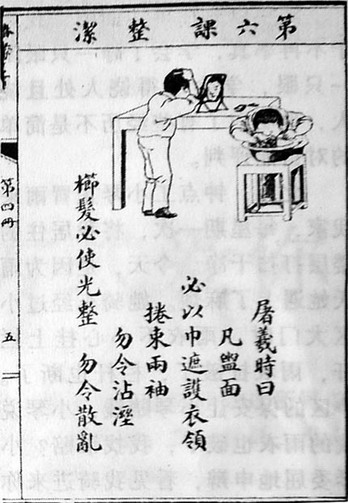 第六課 整潔
屠羲時曰
凡盥面
必以巾遮護衣領
捲束兩袖
勿令沾溼
櫛髮必使光整 勿令散亂
第四冊
五